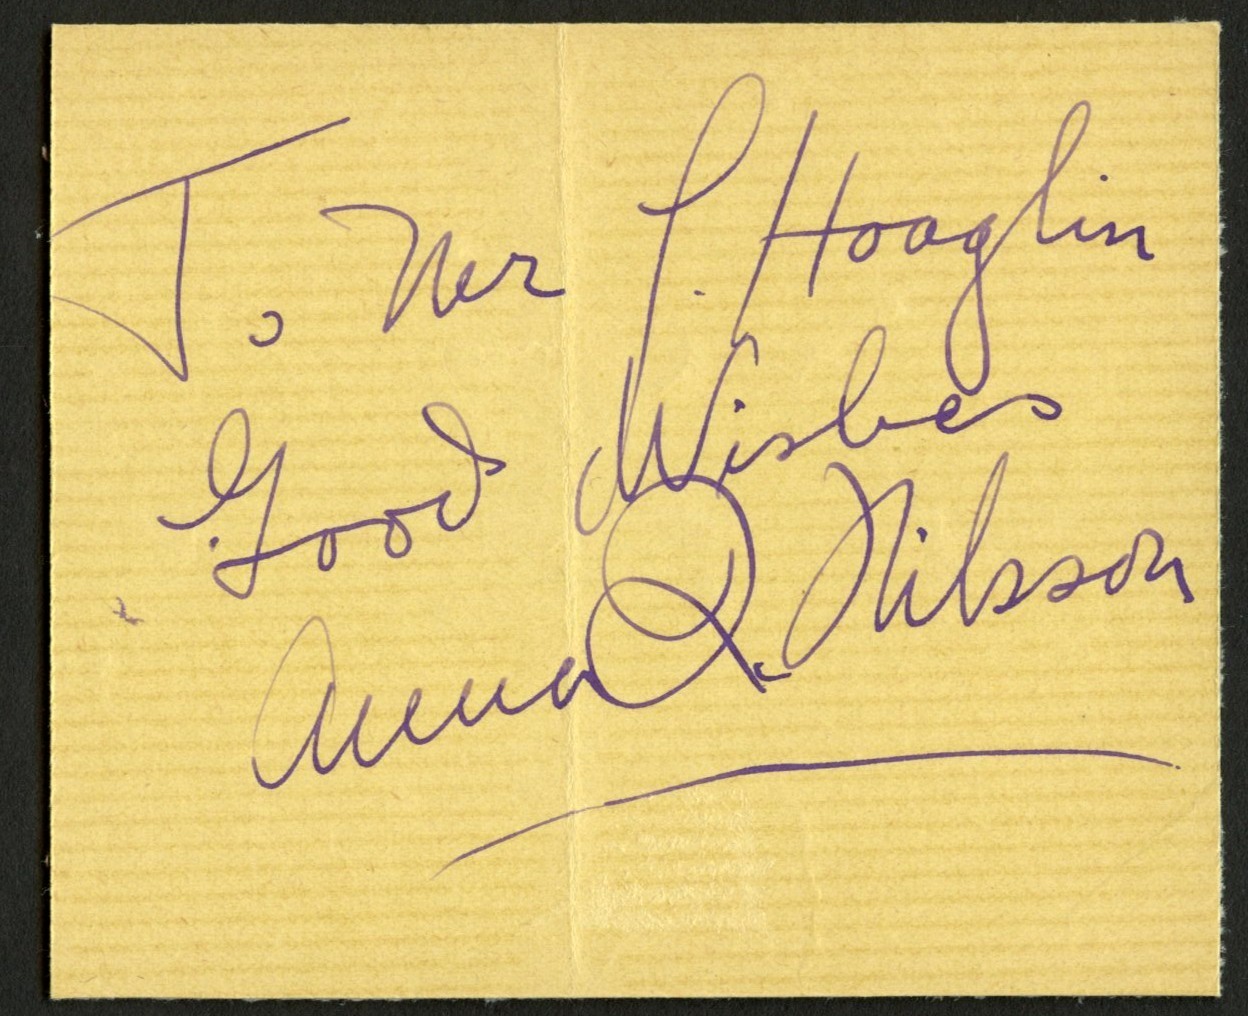 To Mr J. Hoaglin
Good Wishes
Anna Q. Nilsson